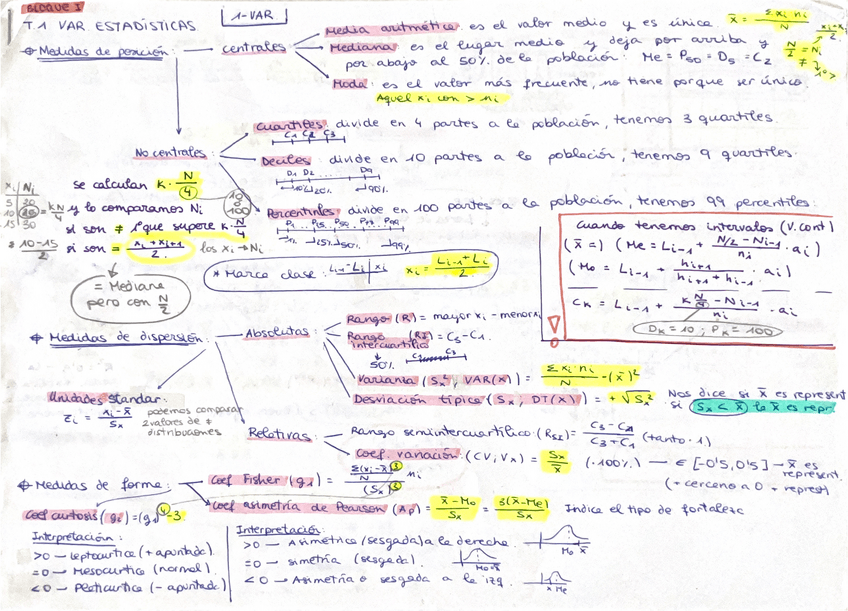 BLOQUE I
T 1 VAR. ESTADÍSTICAS
1-VAR
Medidas de posición:
centrales
Media aritmética: es el valor medio y es única. x̄ = Σ xi ni / N
Mediana: es el lugar medio y deja por arriba y
por abajo al 50% de la población: Me = P50 = D5 = C2
N/2 = Ni
Moda: es el valor más frecuente, no tiene porque ser único.
Aquel xi con > ni
No centrales:
Cuartiles: divide en 4 partes a la población, tenemos 3 quartiles.
C1 C2 C3
Deciles: divide en 10 partes a la población, tenemos 9 quartiles.
D1 D2 ... D9
10% 20% 90%
Percentiles: divide en 100 partes a la población, tenemos 99 percentiles:
1% 25% 50% 99%
se calculan k · N/4
10
100
xi Ni
5 20
10 20
15 30
= kN/4 y lo comparamos Ni
si son ≠ que supere k · N/4
si son = xi + xi+1 / 2. los xi → Ni
= 10-15 / 2
= Mediane
pero con N/2
* Marca clase: Li-1-Li | xi xi = Li-1 + Li / 2
Cuando tenemos intervalos (V. cont)
(x̄ =) (Me = Li-1 + N/2 - Ni-1 / ni · ai)
(Mo = Li-1 + hi+1 / hi+1 + hi-1 · ai)
CK = Li-1 + K N/4 - Ni-1 / ni · ai
DK = 10 ; PK = 100
Medidas de dispersión:
Absolutas:
Rango (R) = mayor xi - menor xi
Rango (RI) = C3 - C1.
intercuartílico
50%
Varianza (Sx², VAR(x)) = Σ xi² ni / N - (x̄)²
Desviación típica (Sx, DT(x)) = + √Sx²
Nos dice si x̄ es represent
si Sx < x̄ la x̄ es repr.
Unidades standar:
zi = xi - x̄ / Sx
podemos comparar
2 valores de ≠
distribuciones
Relativas:
Rango semiintercuartílico (RSI) = C3 - C1 / C3 + C1 (tanto · 1)
Coef. variación (CV, Vx) = Sx / x̄ (· 100%) — ∈ [-0'5, 0'5] → x̄ es
represent.
(+ cerc​eno a 0 + represt)
Medidas de forma:
Coef Fisher (g1) = Σ(xi - x̄)³ / N ni / (Sx)³
Coef curtosis (g2) = (g1)⁴ - 3
Coef asimetría de Pearson (Ap) = x̄ - Mo / Sx = 3(x̄ - Me) / Sx Indice el tipo de fortaleza
Interpretación:
>0 — Leptocurtica (+ apuntada)
=0 — Mesocurtica (normal).
<0 — Platicurtica (- apuntada)
Interpretación:
>0 — Asimétrica (sesgada) a la derecha.
Mo x̄
=0 — simetría (sesgada).
Mo x̄
<0 — Asimetría o sesgada a la izq.
x̄ Me